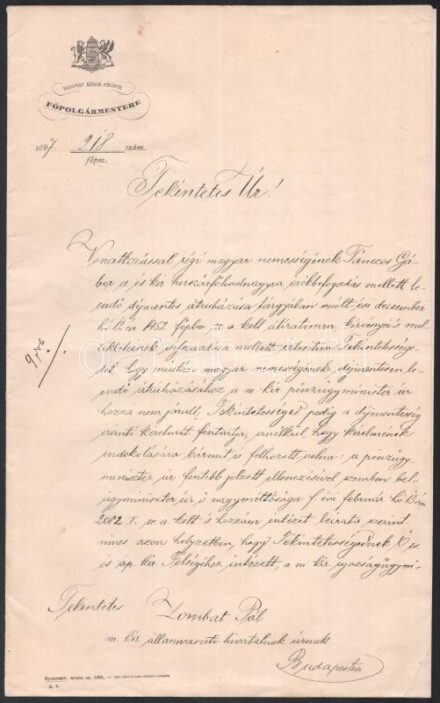 BUDAPEST SZÉKES FŐVÁROS
FŐPOLGÁRMESTERE
1897 218 szám.
főpm.
Tekintetes Úr!
Vonatkozással régi magyar nemességének Tánczos Gá-
bor cs. és kir. huszárfőhadnagyra örökbefogadás mellett le-
endő díjmentes átruházása tárgyában múlt évi deczember
hó
mel-
lékleteinek mellett értesítem Tekintetessége-
det, hogy miután magyar nemességének díjmentesen le-
endő átruházásához a m. kir. pénzügyminister úr
hozzá nem járult, Tekintetességed pedig a díjmentesség
iránti kérelmét fentartja, anélkül, hogy kérelmének
indokolására bármit is felhozott volna: a pénzügy-
minister úr fentebb jelzett ellenzésével szemben bel-
ügyminister úr ő nagyméltósága f. évi február hó
2082 I. sz. a. kelt s hozzám intézett leirata szerint
nincs azon helyzetben, hogy Tekintetességednek Ő cs.
és ap. kir. Felségéhez intézett, a m. kir. igazságügymi-
Tekintetes Lombat Pál
m. kir. hivatalnok úrnak
Budapesten